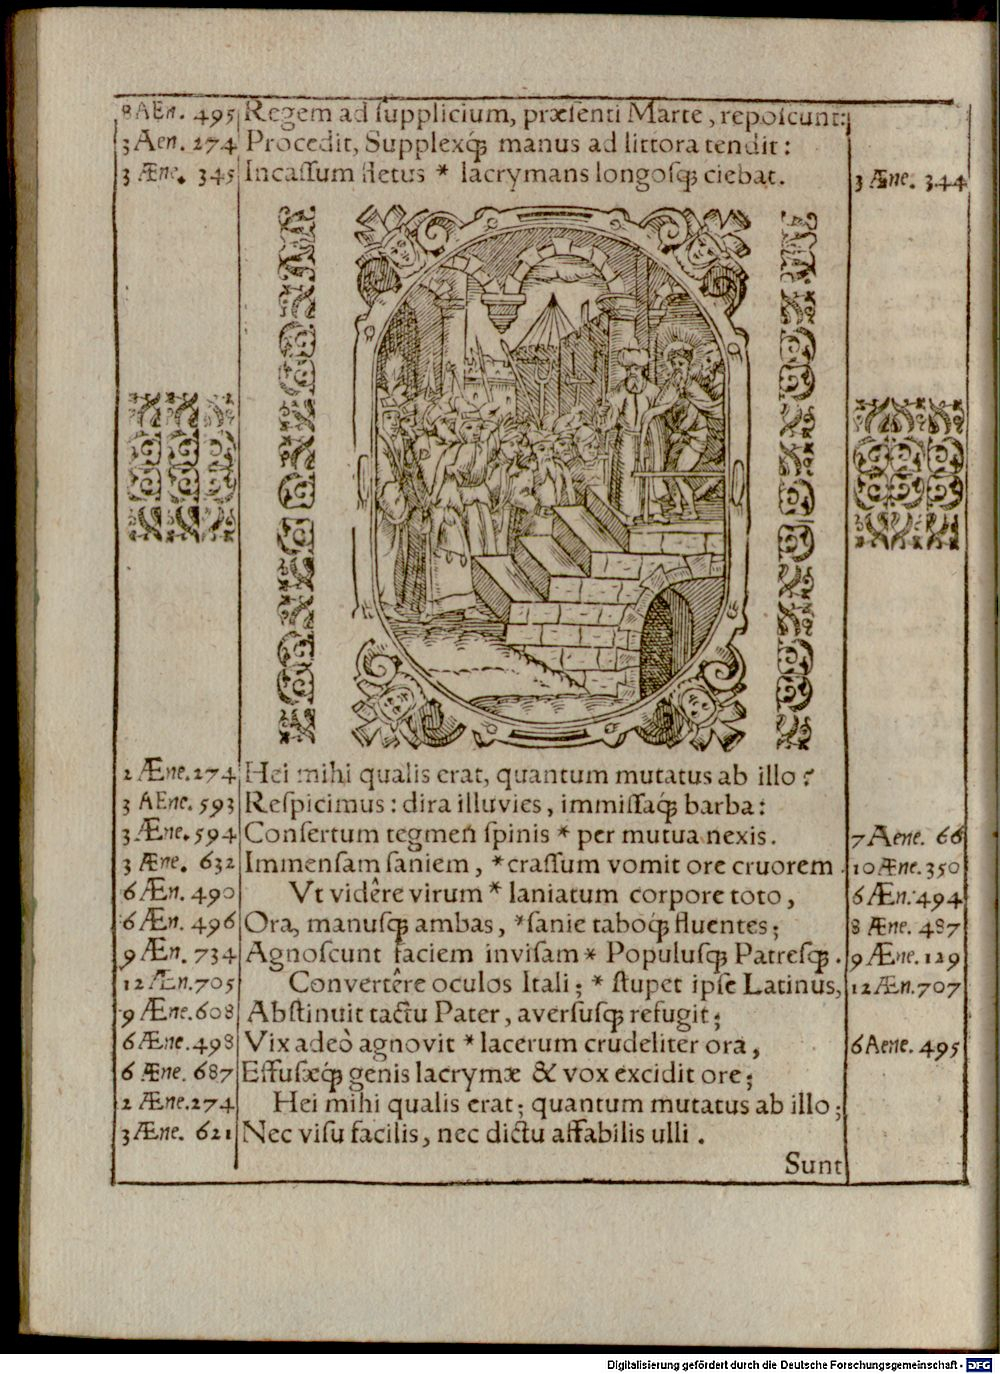 8 AEn. 495 Regem ad ſupplicium, præſenti Marte, repoſcunt:
3 Aen. 274 Procedit, Supplexq́; manus ad littora tendit:
3 Æne. 345 Incaſſum fletus * lacrymans longoſq; ciebat. 3 Æne. 344
2 Æne. 274 Hei mihi qualis erat, quantum mutatus ab illo?
3 AEne. 593 Reſpicimus: dira illuvies, immiſſaq́; barba:
3 Æne. 594 Conſertum tegmen ſpinis * per mutua nexis. 7 Aene. 66
3 Æne. 632 Immenſam ſaniem, * craſſum vomit ore cruorem. 10 Æne. 350
6 Æn. 490 Vt vidêre virum * laniatum corpore toto, 6 Æn. 494
6 Æn. 496 Ora, manuſq; ambas, * ſanie taboq́; fluentes; 8 Æne. 487
9 Æn. 734 Agnoſcunt faciem inviſam * Populuſq; Patreſq;. 9 Æne. 129
12 Æn. 705 Convertêre oculos Itali; * ſtupet ipſe Latinus, 12 Æn. 707
9 Æne. 608 Abſtinuit tactu Pater, averſuſq; refugit;
6 Æne. 498 Vix adeò agnovit * lacerum crudeliter ora, 6 Aene. 495
6 Æne. 687 Effuſæq́; genis lacrymæ & vox excidit ore;
2 Æne. 274 Hei mihi qualis erat; quantum mutatus ab illo;
3 Æne. 621 Nec viſu facilis, nec dictu affabilis ulli.
Sunt
Digitalisierung gefördert durch die Deutsche Forschungsgemeinschaft - DFG